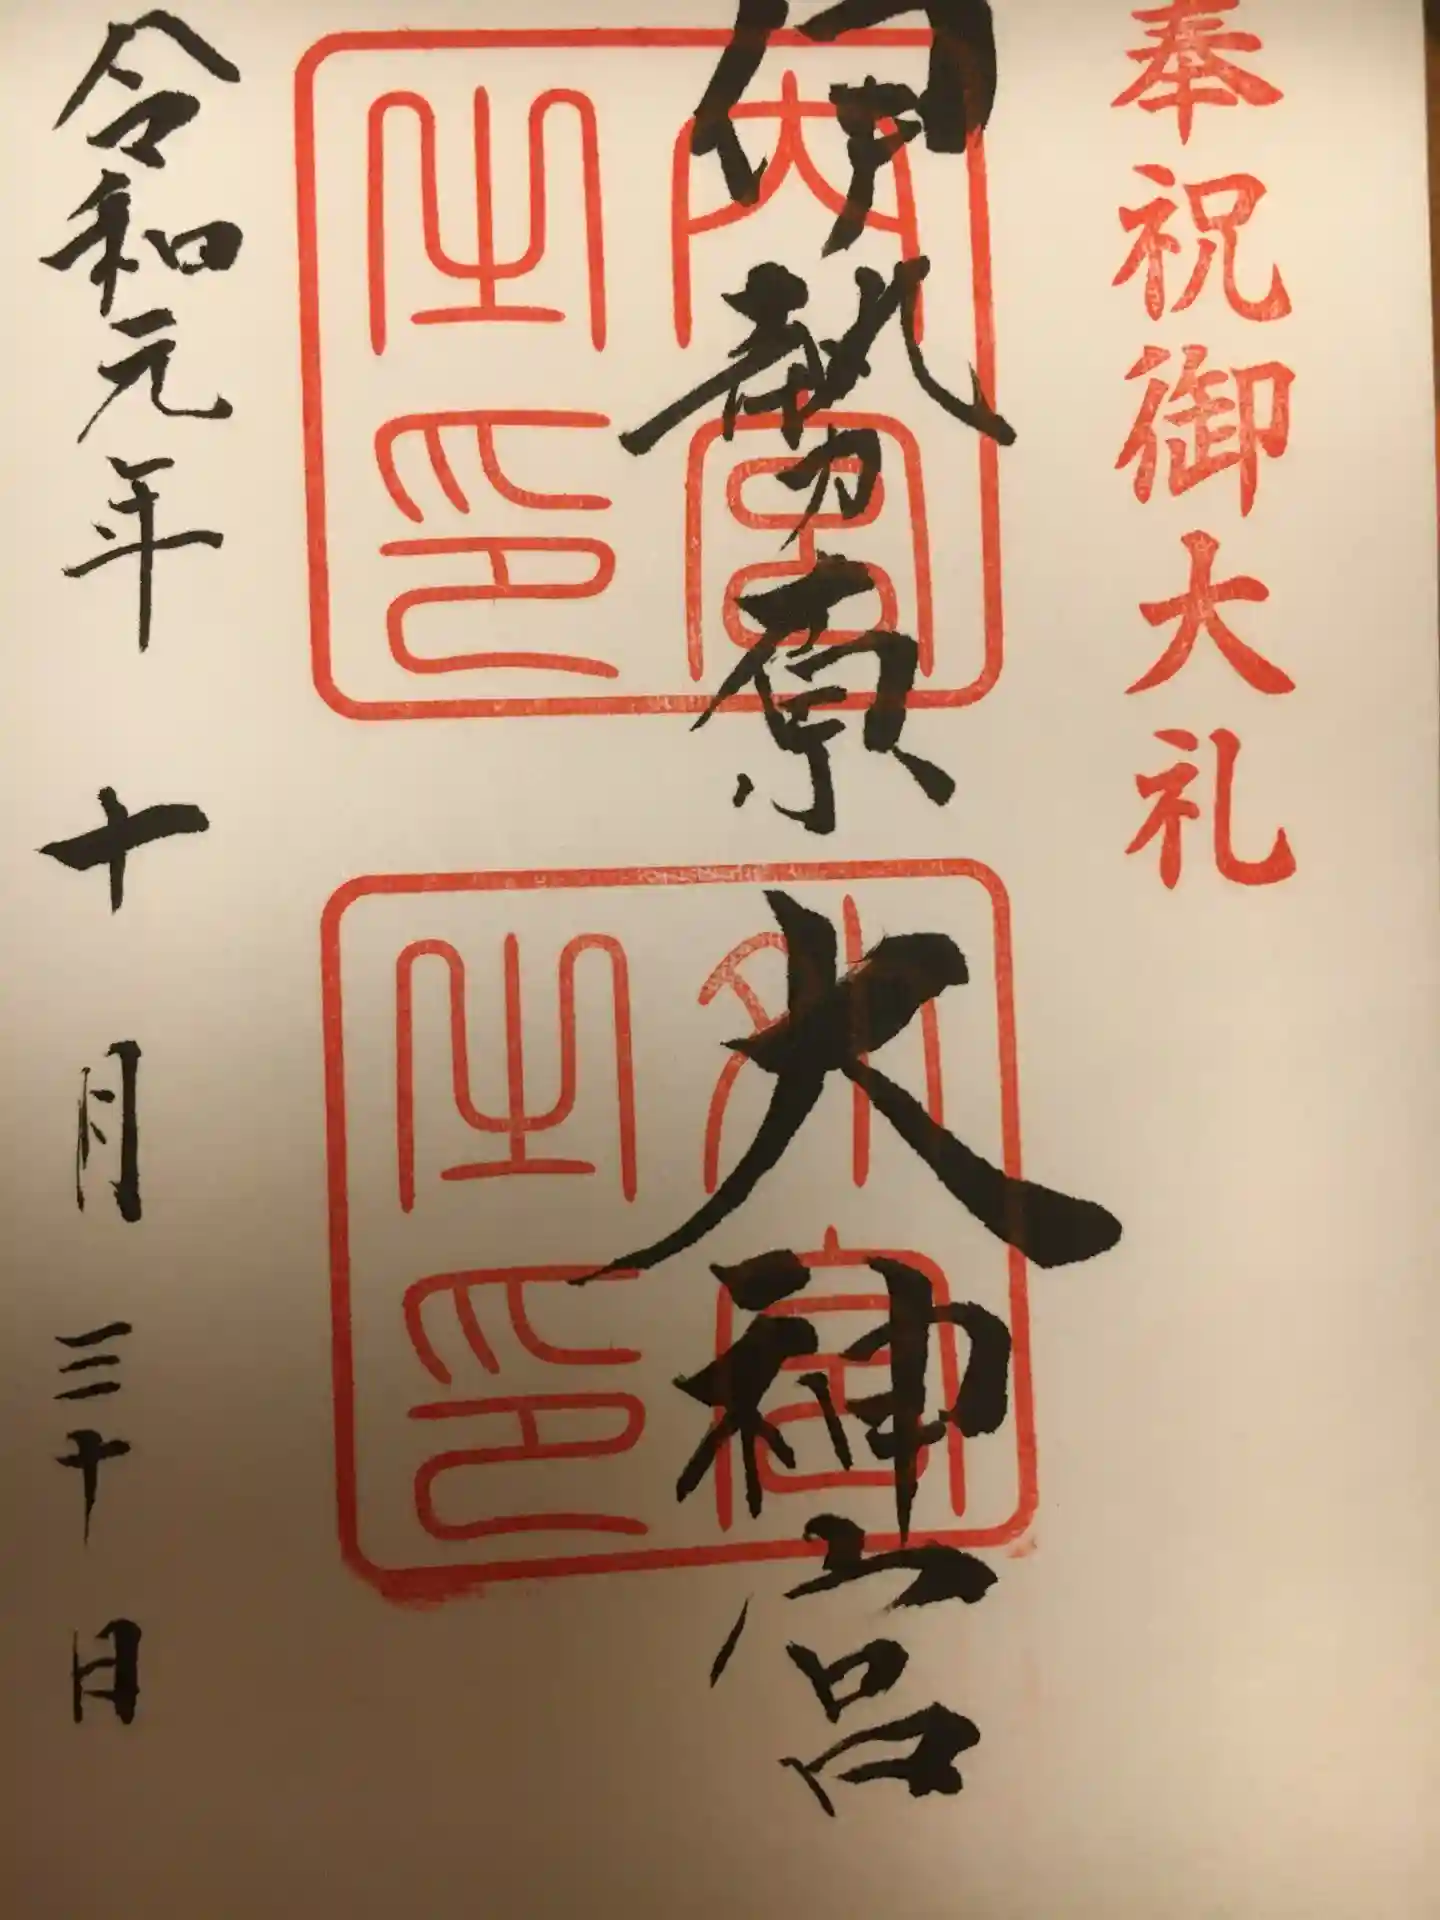 奉祝御大礼
伊勢原大神宮
内宮之印
外宮之印
令和元年 十月三十日